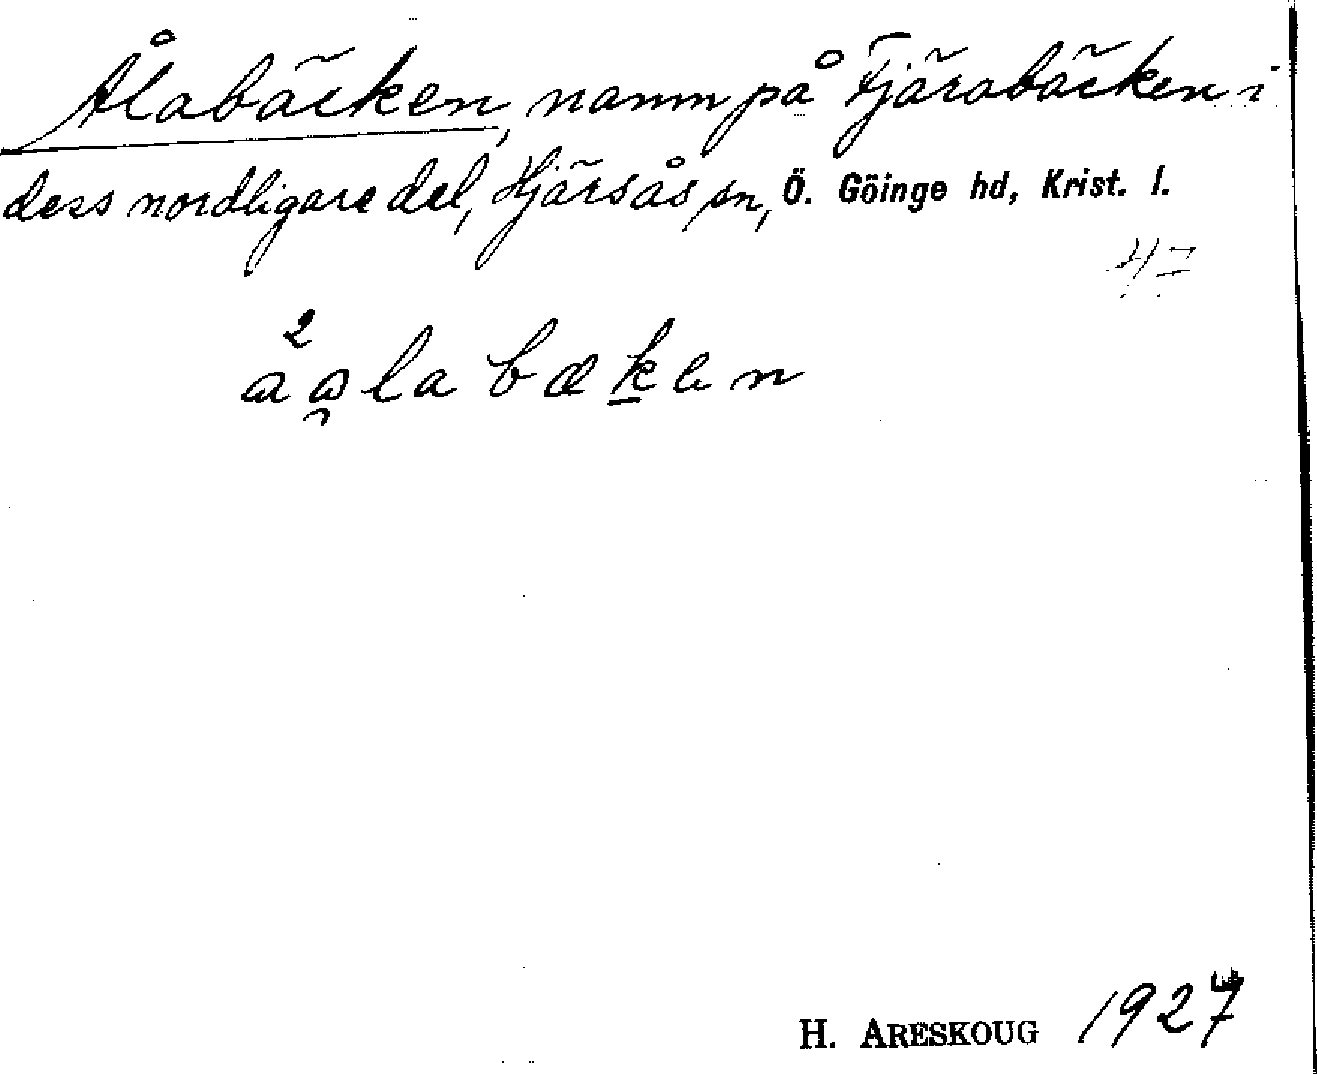 Ålabäcken, namn på Fjärabäcken i
dess nordligare del, Hjärsås sn, Ö. Göinge hd, Krist. l.
47
H. ARESKOUG 1927